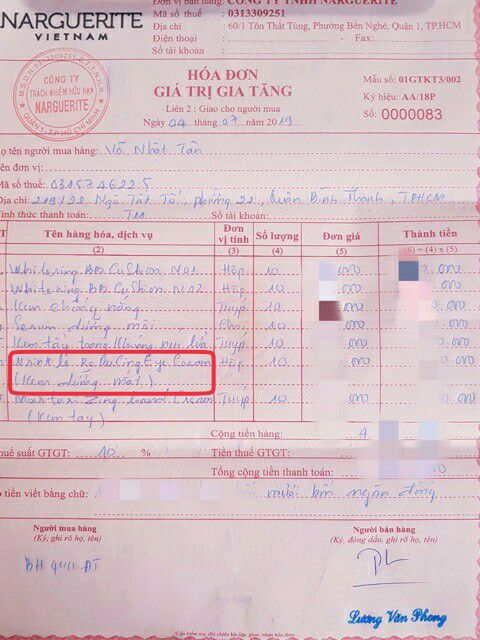 NARGUERITE
VIETNAM
Đơn vị bán hàng: CÔNG TY TNHH NARGUERITE
Mã số thuế : 0313309251
Địa chỉ : 60/1 Tôn Thất Tùng, Phường Bến Nghé, Quận 1, TP.HCM
Điện thoại : - Fax:
Số tài khoản :
CÔNG TY
TRÁCH NHIỆM HỮU HẠN
NARGUERITE
HÓA ĐƠN
GIÁ TRỊ GIA TĂNG
Liên 2 : Giao cho người mua
Ngày 04 tháng 07 năm 2019
Mẫu số: 01GTKT3/002
Ký hiệu: AA/18P
Số: 0000083
ọ tên người mua hàng: Võ Nhật Tân
ên đơn vị:
Mã số thuế: 0315746225
Địa chỉ: 219/22 Ngô Tất Tố, phường 22, Quận Bình Thạnh, TPHCM
Hình thức thanh toán: TM Số tài khoản:
T Tên hàng hóa, dịch vụ Đơn vị tính Số lượng Đơn giá Thành tiền
(2) (3) (4) (5) (6) = (4) x (5)
Whitening BB Cushion No1 Hộp 10 000 000
Whitening BB Cushion No2 Hộp 10 000 000
Kem chống nắng Tuýp 10 000 000
Serum dưỡng Chai 10 000 000
Kem tẩy trang Tuýp 10 000 000
Eye Cream Hộp 10 000 000
(Kem dưỡng mắt)
Cream Tuýp 10 000 000
(Kem tẩy)
Cộng tiền hàng: 4 000
huế suất GTGT: 10 % Tiền thuế GTGT:
Tổng cộng tiền thanh toán: 000
ố tiền viết bằng chữ: mươi bốn ngàn đồng
Người mua hàng Người bán hàng
(Ký, ghi rõ họ, tên) (Ký, đóng dấu, ghi rõ họ, tên)
BH QUA ĐT
Lương Văn Phong
(Cần kiểm tra, đối chiếu khi lập, giao, nhận hóa đơn)